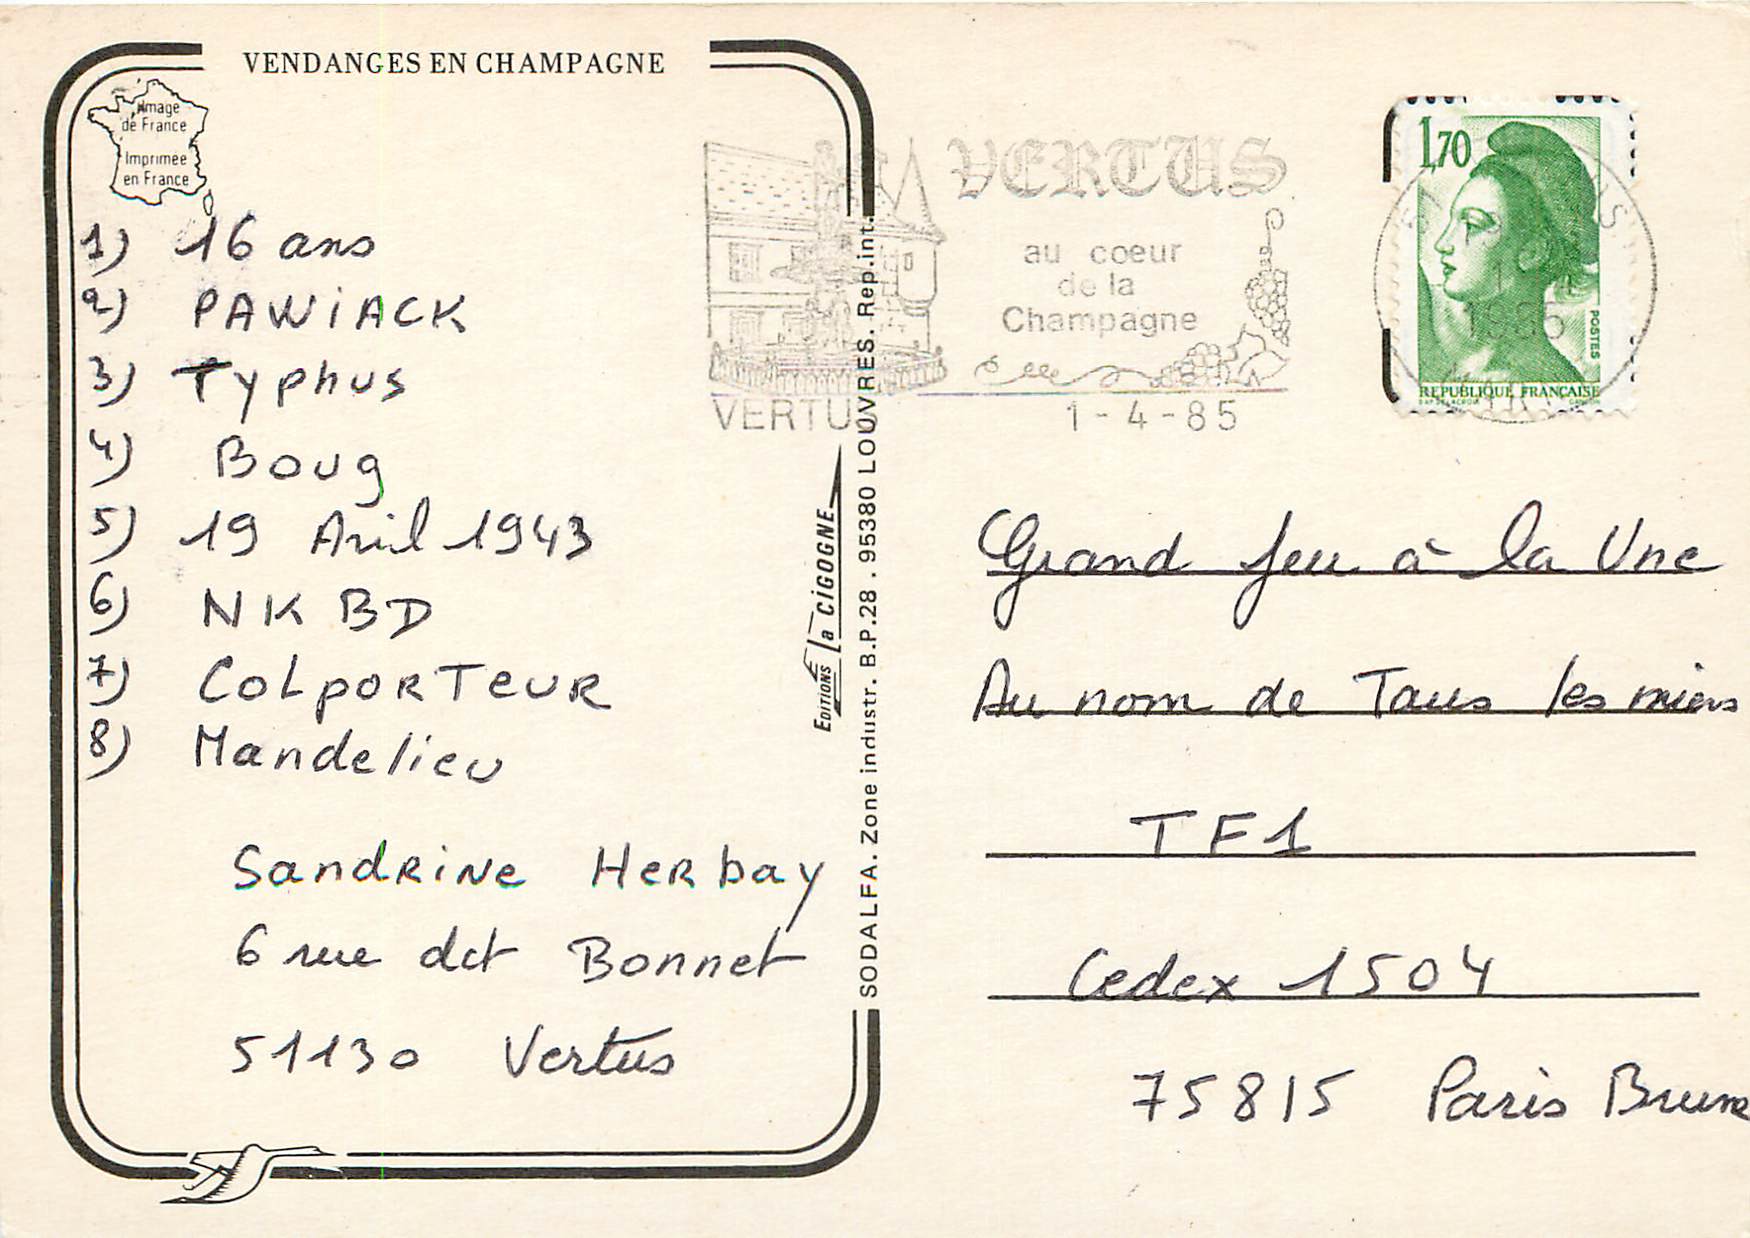 VENDANGES EN CHAMPAGNE
Image
de France
Imprimée
en France
1) 16 ans
2) PAWiACK
3) Typhus
4) Boug
5) 19 Avril 1943
6) NKBD
7) COLPORTEUR
8) Mandelieu
Sandrine Herbay
6 rue dct Bonnet
51130 Vertus
EDITIONS La CIGOGNE
SODALFA. Zone industr. B.P.28 . 95380 LOUVRES. Rep.int.
VERTUS
au coeur
de la
Champagne
VERTUS
1-4-85
1,70
POSTES
REPUBLIQUE FRANÇAISE
Grand jeu à la Une
Au nom de Tous les miens
TF1
Cedex 1504
75815 Paris Brune